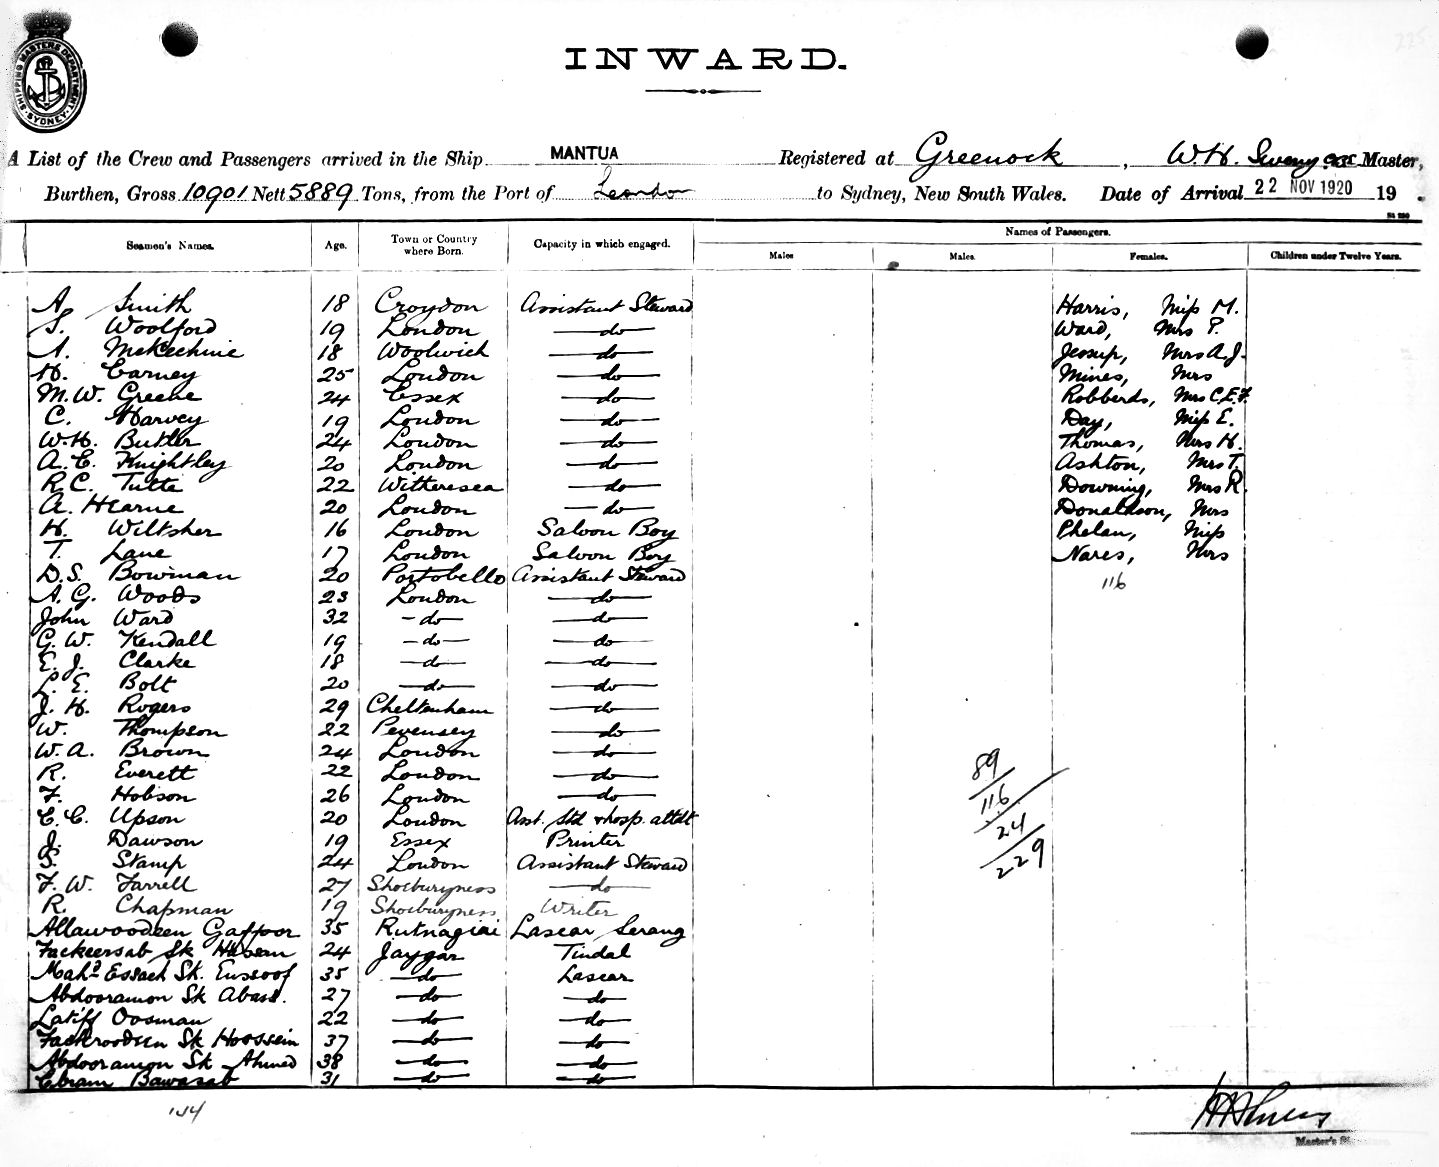 SHIPPING MASTERS DEPARTMENT SYDNEY
INWARD.
A List of the Crew and Passengers arrived in the Ship MANTUA Registered at Greenock, W.H. Master,
Burthen, Gross 10901 Nett 5889 Tons, from the Port of London to Sydney, New South Wales. Date of Arrival 22 NOV 1920 19 .
Seamen's Names. Age. Town or Country where Born. Capacity in which engaged. Names of Passengers.
Males Males. Females. Children under Twelve Years.
A. Smith 18 Croydon Assistant Steward Harris, Miss M.
S. Woolford 19 London do Ward, Mrs P.
A. McKechnie 18 Woolwich do Jessup, Mrs A.J.
H. Carney 25 London do Mines, Mrs
M.W. Greene 24 Essex do Robberds, Mrs C.E.F.
C. Harvey 19 London do Day, Miss E.
W.H. Butler 24 London do Thomas, Mrs H.
A.E. Knightley 20 London do Ashton, Mrs T.
R.C. Tutte 22 Withersea do Downing, Mrs R.
A. Hearne 20 London do Donaldson, Mrs
H. Wiltsher 16 London Saloon Boy Phelan, Miss
T. Lane 17 London Saloon Boy Nares, Mrs
D.S. Bowman 20 Portobello Assistant Steward 116
A.G. Woods 23 London do
John Ward 32 do do
G.W. Kendall 19 do do
E.J. Clarke 18 do do
L.E. Bolt 20 do do
J.H. Rogers 29 Cheltenham do
W. Thompson 22 Pevensey do
W.A. Brown 24 London do
R. Everett 22 London do
F. Hobson 26 London do
E.C. Upson 20 London Asst. Std & hosp. attdt
J. Dawson 19 Essex Printer
S. Stamp 24 London Assistant Steward
F.W. Farrell 27 Shoeburyness do
R. Chapman 19 Shoeburyness Writer
Allawoodeen Gaffoor 35 Rutnagiai Lascar Serang
Fackeersab Sk Hassan 24 Jaygar Tindal
Mahd Essach Sk. Eussoof 35 do Lascar
Abdooramon Sk Abass. 27 do do
Latiff Oosman 22 do do
Fackroodeen Sk Hoossein 37 do do
Abdooramon Sk Ahmed 38 do do
Ebram Bawasab 31 do do
89
116
24
229
Master's